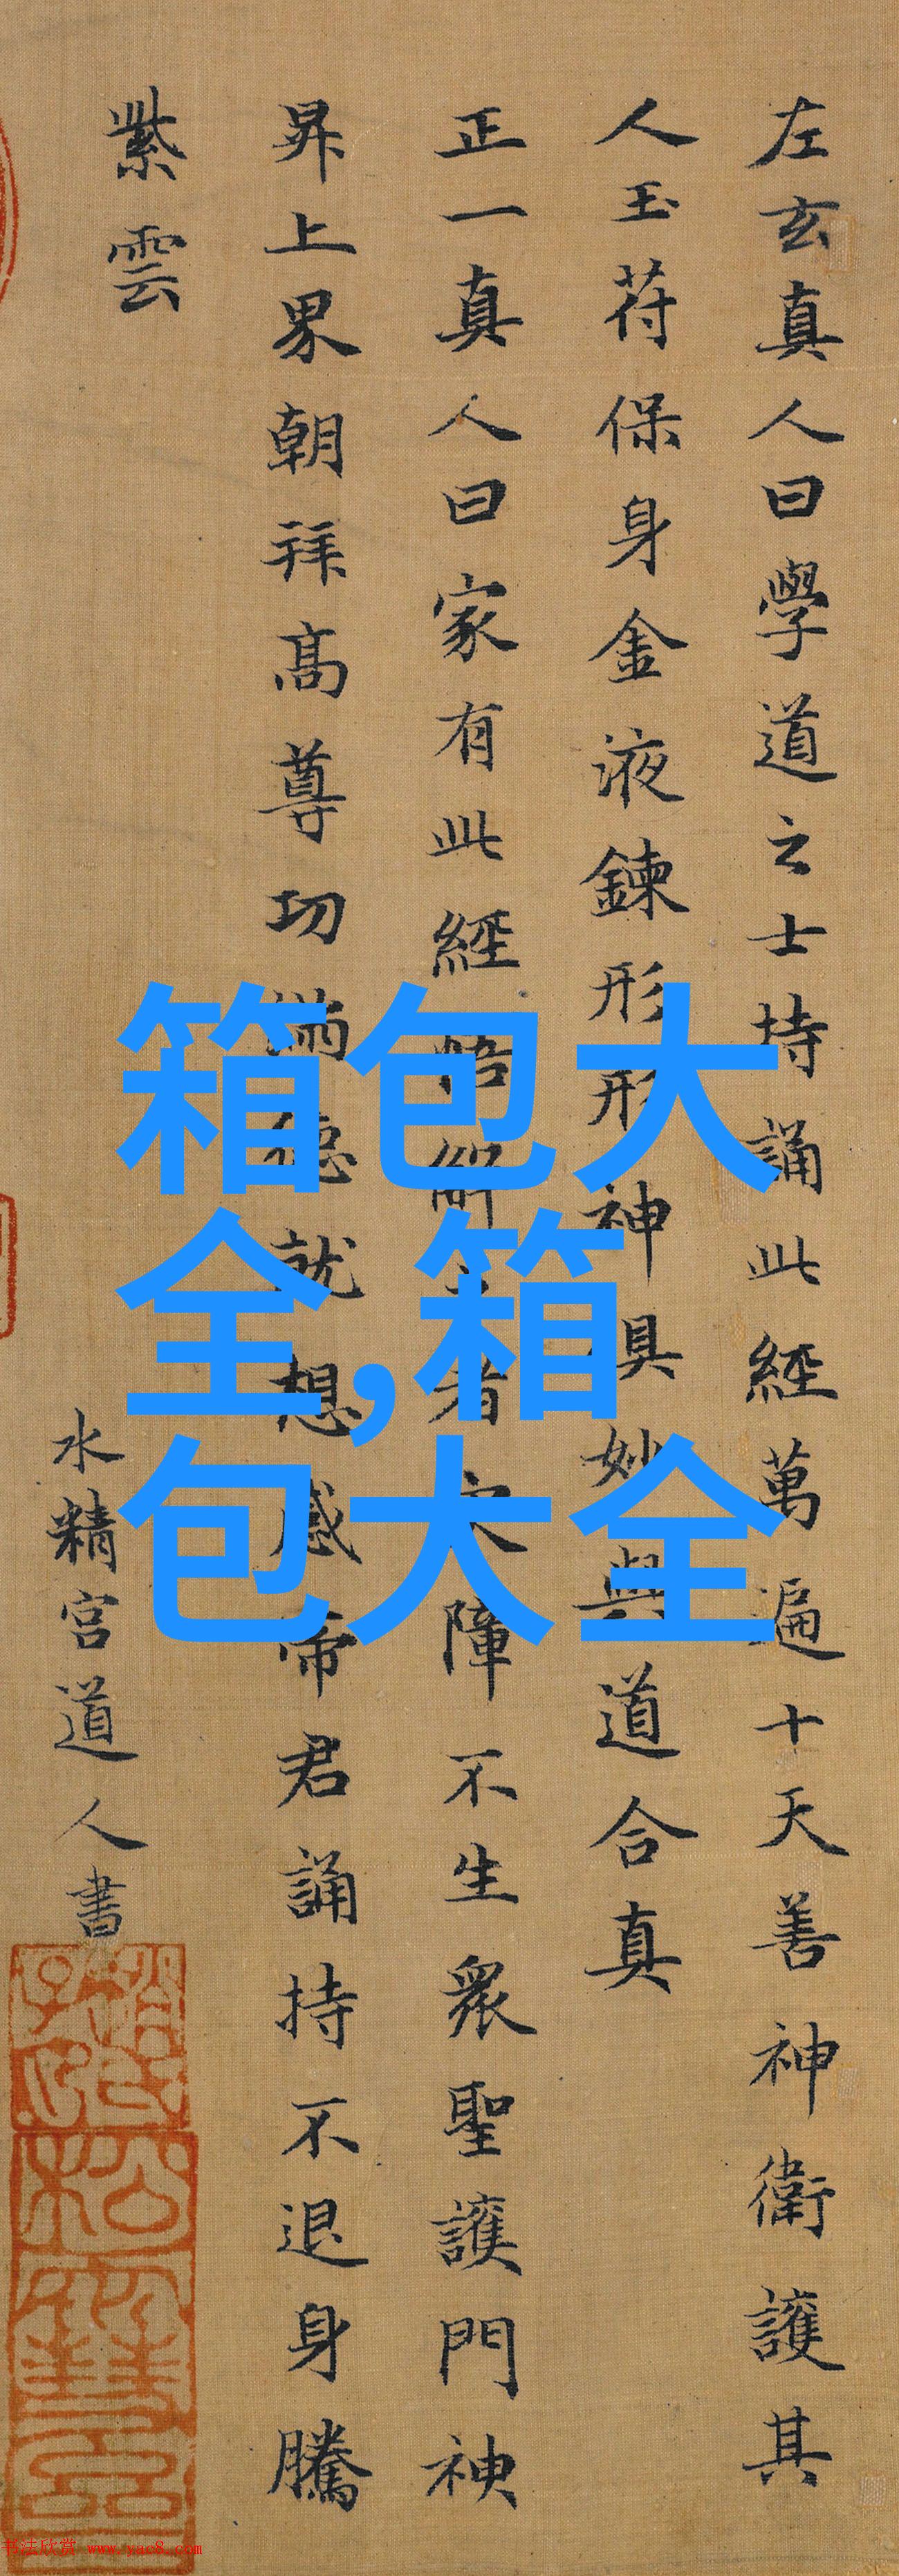 左玄真人曰學道之士持誦此經萬遍十天善神衛護其
人玉苻保身金液鍊形形神俱妙與道合真
正一真人曰家有此經悟解之者灾障不生衆聖護門神
昇上界朝拜高尊功滿德就想感帝君誦持不退身騰
紫雲
水精宮道人書
箱包大
全,箱
包大全
书法欣赏 www.yac8.com